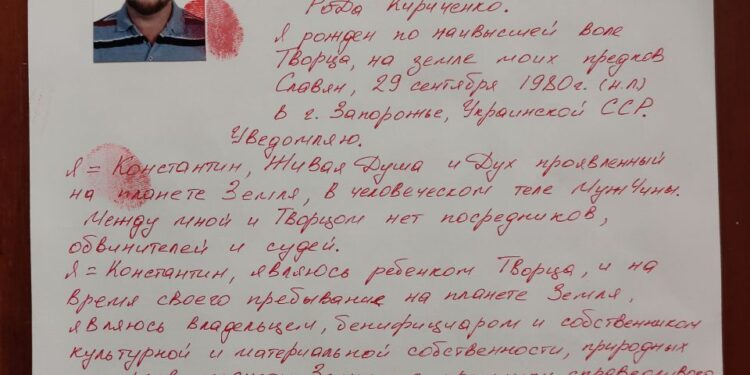 Рода Кириченко.
Я рожден по наивысшей воле
Творца, на земле моих предков
Славян, 29 сентября 1980г. (н.л)
в г. Запорожье, Украинской ССР.
Уведомляю.
Я = Константин, Живая Душа и Дух проявленный
на планете Земля, в человеческом теле МужЧины.
Между мной и Творцом нет посредников,
обвинителей и судей.
Я = Константин, являюсь ребенком Творца, и на
время своего пребывание на планете Земля,
являюсь владельцем, бенифициаром и собственником
культурной и материальной собственности, природных
справедливого